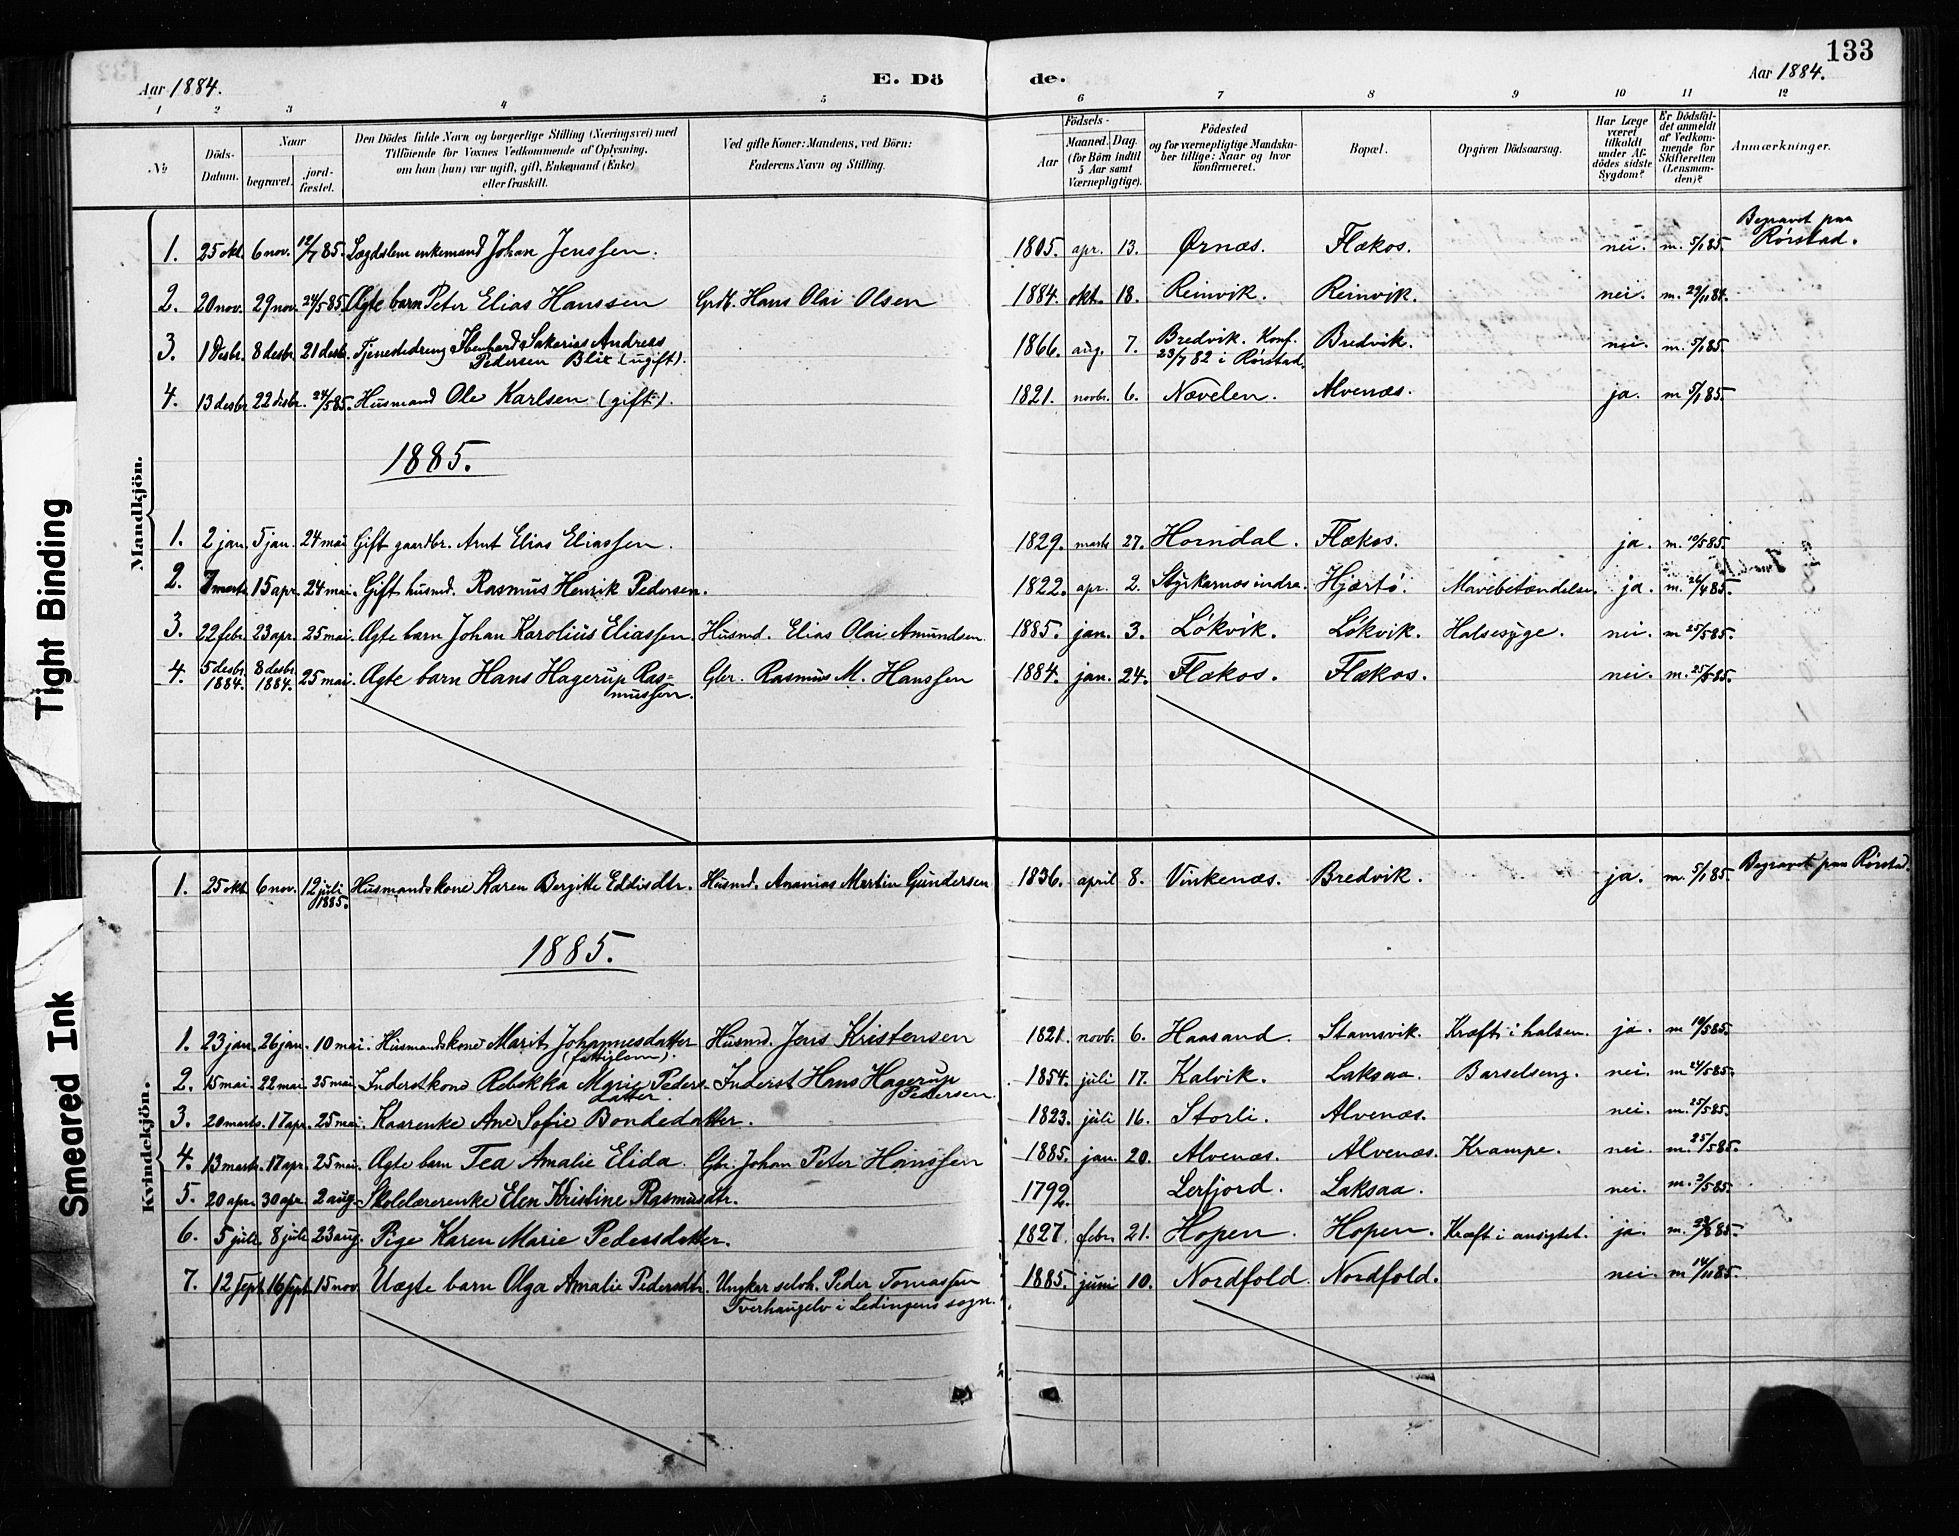 133
Aar 1884. E. Dö de. Aar 1884.
1 2 3 4 5 6 7 8 9 10 11 12
№
Döds-Datum.
Naar
begravet.
jord-fæstet.
Den Dödes fulde Navn og borgerlige Stilling (Næringsvei) med
Tilföiende for Voxnes Vedkommende af Oplysning,
om han (hun) var ugift, gift, Enkemand (Enke)
eller fraskilt.
Ved gifte Koner: Mandens, ved Börn:
Faderens Navn og Stilling.
Födsels-
Aar
Maaned. Dag.
(for Börn indtil
5 Aar samt
Værnepligtige).
Födested
og for værnepligtige Mandska-
ber tillige: Naar og hvor
konfirmeret.
Bopæl.
Opgiven Dödsaarsag.
Har Læge
været
tilkaldt
under Af-
dödes sidste
Sygdom?
Er Dödsfal-
det anmeldt
af Vedkom-
mende for
Skifteretten
(Lensman-
den)?
Anmærkninger.
Mandkjön.
1. 25 okt. 6 nov. 12/7 85. Lægdslem enkemand Johan Jenssen. 1805. apr. 13. Ørnæs. Flækos. nei. m. 5/1 85. Begravet paa Rørstad.
2. 20 nov. 29 nov. 24/5 85. Ægte barn Peter Elias Hanssen Grdb. Hans Olai Olsen 1884. okt. 18. Reinvik. Reinvik. nei. m. 29/11 84.
3. 1 desbr. 8 desbr. 21 desbr. Tjenestedreng Ibenhard Sakarias Andreas
Pedersen Blix (ugift). 1866. aug. 7. Bredvik. Konf.
23/7 82 i Rørstad. Bredvik. nei. m. 5/1 85.
4. 13 desbr. 22 desbr. 24/5 85. Husmand Ole Karlsen (gift). 1821. novbr. 6. Nævelen. Alvenæs. ja. m. 5/1 85.
1885.
1. 2 jan. 5 jan. 24 mai Gift gaardbr. Arnt Elias Eliassen. 1829. marts 27. Horndal. Flækos. ja. m. 10/5 85.
2. 7 marts. 15 apr. 24 mai. Gift husmd. Rasmus Henrik Pedersen. 1822. apr. 2. Styrkarnæs indre. Hjærtø. Mavebetændelse. ja. m. 26/4 85.
3. 22 febr. 23 apr. 25 mai. Ægte barn Johan Karolius Eliassen. Husmd. Elias Olai Amundsen 1885. jan. 3. Løkvik. Løkvik. Halsesyge. nei. m 25/5 85.
4. 5 desbr. 1884. 8 desbr. 1884. 25 mai. Ægte barn Hans Hagerup Ras-
mussen. Gbr. Rasmus M. Hanssen 1884. jan. 24. Flækos. Flækos. nei. m. 25/5 85.
Kvindekjön.
1. 25 okt. 6 nov. 12 juli 1885. Husmandskone Karen Bergitte Eddisdtr. Husmd. Ananias Martin Gundersen 1836. april 8. Vinkenæs. Bredvik. ja. m. 5/1 85. Begravet paa Rørstad.
1885.
1. 23 jan. 26 jan. 10 mai. Husmandskone Marit Johannesdatter
(fattiglem). Husmd. Jens Kristensen 1821. novb. 6. Haasand. Stamsvik. Kræft i halsen. ja. m 10/5 85.
2. 15 mai. 22 mai. 25 mai. Inderstkone Rebekka Marie Peders-
datter. Inderst Hans Hagerup
Pedersen. 1854. juli 17. Kalvik. Laksaa. Barselseng. nei. m 24/5 85.
3. 20 marts. 17 apr. 25 mai. Kaarenke Ane Sofie Bondedatter. 1823. juli 16. Storli. Alvenæs. nei. m. 25/5 85.
4. 13 marts. 17 apr. 25 mai. Ægte barn Tea Amalie Elida. Gbr. Johan Peter Hanssen 1885. jan. 20. Alvenæs. Alvenæs. Krampe. nei. m. 25/5 85.
5. 20 apr. 30 apr. 2 aug. Skolelærerenke Elen Kristine Rasmusdtr. 1792. Lerfjord. Laksaa. nei. m. 3/5 85.
6. 5 juli. 8 juli 23 aug. Pige Karen Marie Pedersdatter. 1827. febr. 21. Hopen. Hopen. Kræft i ansigtet. ja. m. 85.
7. 12 sept. 16 sept. 15 nov. Uægte barn Olga Amalie Pedersdtr. Ungkar selvh. Peder Tomassen
Tverhaugelv i Lødingens sogn. 1885. juni 10. Nordfold. Nordfold. nei. m 14/11 85.
Tight Binding
Smeared Ink